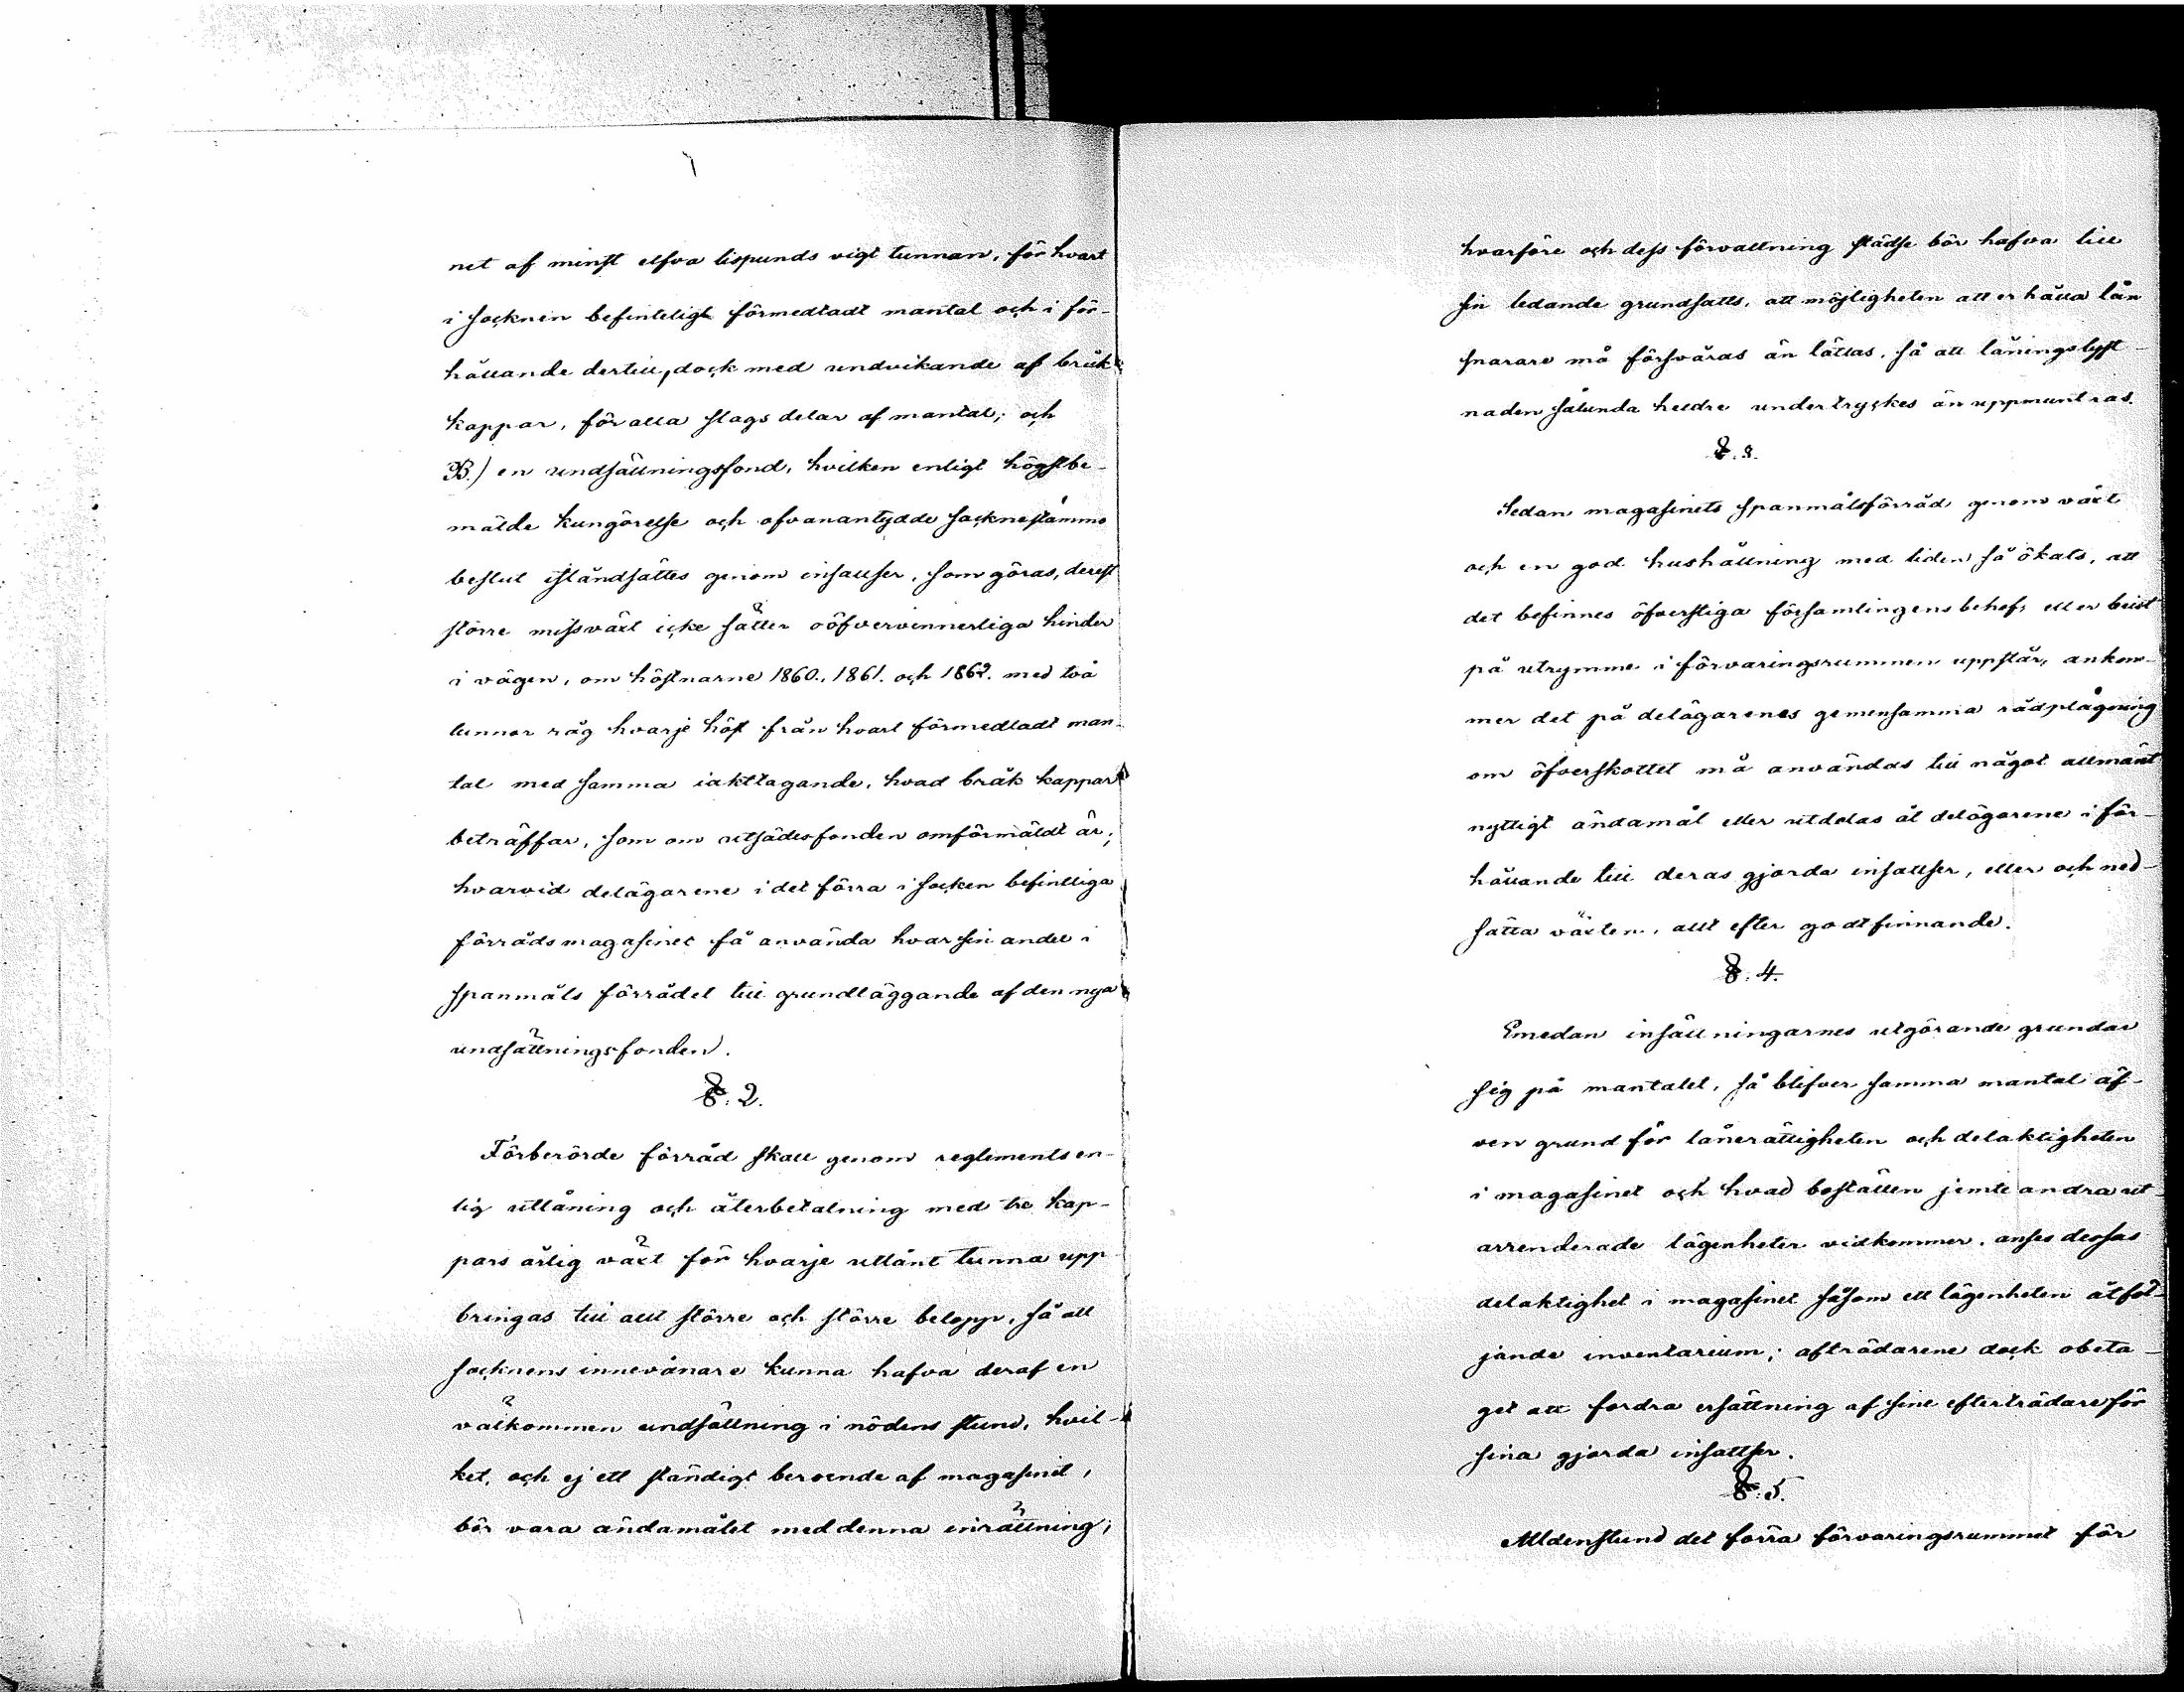 net af minst elfva lispunds vigt tunnan, för hvart
i socknen befinteligt förmedladt mantal och i för-
hållande dertill, dock med undvikande af bråk
kappar, för alla slags delar af mantal; och
B.) en undsättningsfond, hvilken enligt högstbe-
mälde kungörelse och ofvanantydde sockne stämmo
beslut iståndsättes genom insattser, som göras, derest
större missväxt icke sätter oöfvervinnerliga hinder
i vägen, om höstnarne 1860., 1861. och 1862. med två
tunnor råg hvarje höst från hvart förmedladt man-
tal med samma iakttagande, hvad bråk kappar
beträffar, som om utsädesfonden omförmäldt är;
hvarvid delägarene i det förra i socken befintliga
förrådsmagasinet få använda hvar sin andel i
spanmåls förrådet till grundläggande af den nya
undsättningsfonden.
§. 2.
Förberörde förråd skall genom reglements en-
lig utlåning och återbetalning med tre kap-
pars årlig växt för hvarje utlånt tunna upp
bringas till allt större och större belopp, så att
socknens innevånare kunna hafva deraf en
välkommen undsättning i nödens stund, hvil-
ket, och ej ett ständigt beroende af magasinet,
bör vara ändamålet med denna inrättning;
hvarföre och dess förvaltning städse bör hafva till
sin ledande grundsatts, att möjligheten att erhålla lån
snarare må försvåras än lättas, så att låningslyst-
naden sålunda heldre undertryckes än uppmuntras.
§. 3.
Sedan magasinets spanmålsförråd genom växt
och en god hushållning med tiden så ökats, att
det befinnes öfverstiga församlingens behof, eller brist
på utrymme i förvaringsrummen uppstår, ankom-
mer det på delägarenes gemensamma rådplägning
om öfverskottet må användas till något allmänt
nyttigt ändamål eller utdelas åt delägarene i för-
hållande till deras gjorda insattser, eller och ned-
sätta växten, allt efter godtfinnande.
§. 4.
Emedan insättningarnes utgörande grundar
sig på mantalet, så blifver samma mantal äf-
ven grund för lånerättigheten och delaktigheten
i magasinet och hvad boställen jemte andra ut-
arrenderade lägenheter vidkommer, anses dessas
delaktighet i magasinet såsom ett lägenheten åtföl-
jande inventarium; afträdarene dock obeta-
get att fordra ersättning af sine efterträdare för
sina gjorda insattser.
§. 5.
Alldenstund det förra förvaringsrummet för